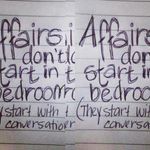 Affairs
don't
start in t
bedroom
start with t
conversation
Affairs
don't
start in
bedroo
(They start with
conversat